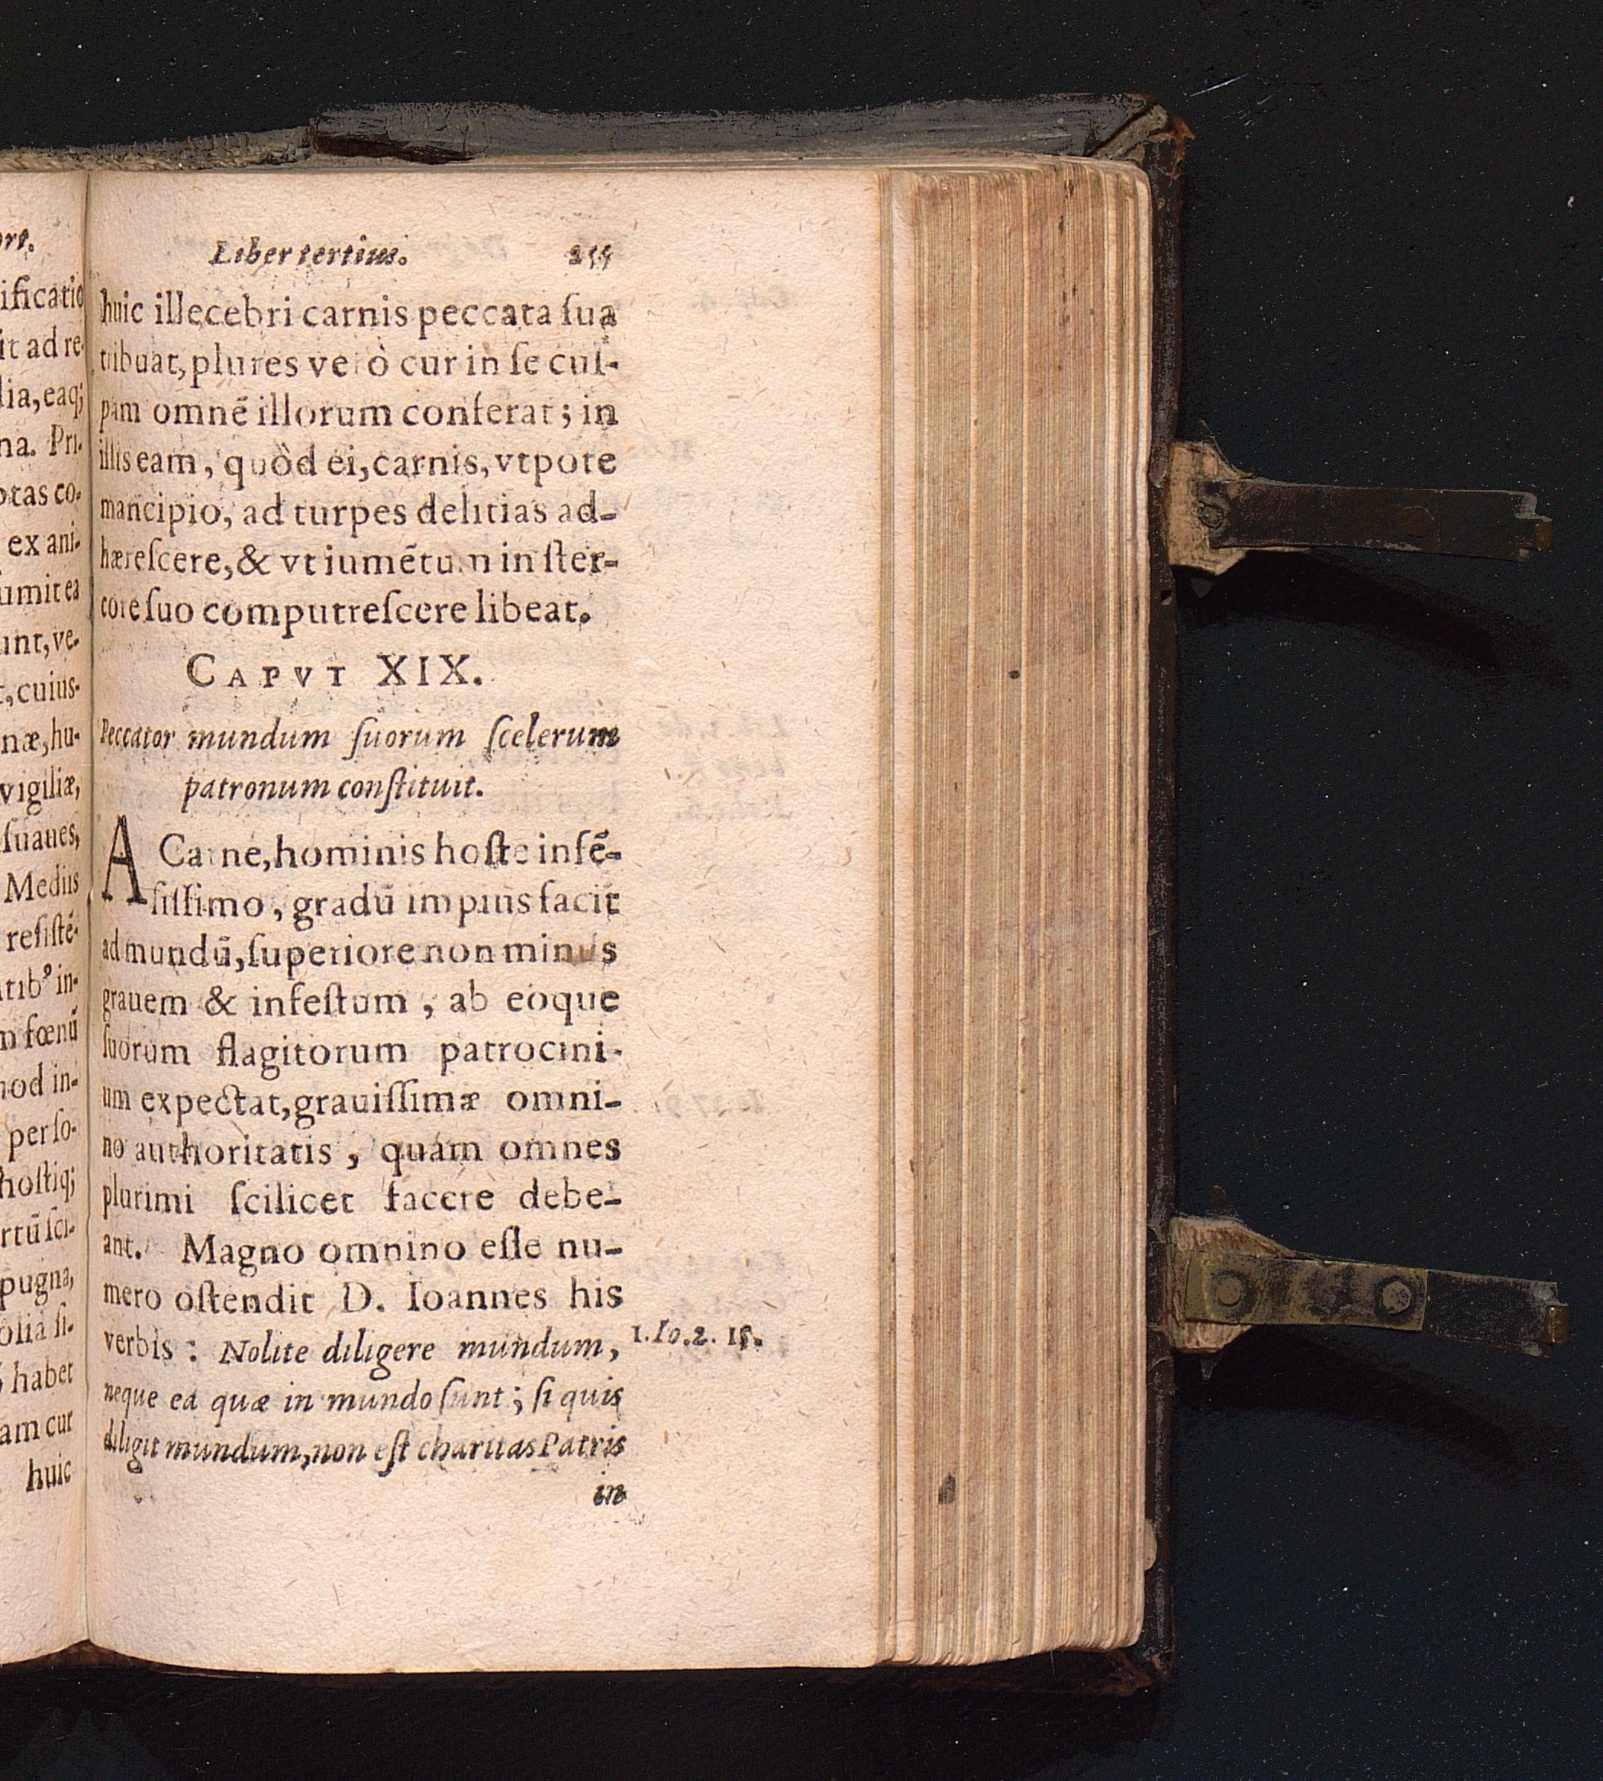 ort.
ificatio
it ad re-
lia, eaq;
na. Pri-
otas co-
ex ani-
umit ea
unt, ve-
t, cuius-
næ, hu-
vigiliæ,
ſuaues,
Mediis
reſiſtē-
tib⁹ in-
m fœnū
nod in-
perſo-
hoſtiq;
rtū ſci-
pugna,
oliā ſi-
habet
am cur
huic
Liber tertius. 255
huic illecebri carnis peccata ſua
tribuat, plures verò cur in ſe cul-
pam omnē illorum conferat; in
illis eam, quòd ei, carnis, vtpote
mancipio, ad turpes delitias ad-
hæreſcere, & vt iumētum in ſter-
core ſuo computreſcere libeat.
CAPVT XIX.
Peccator mundum ſuorum ſcelerum
patronum conſtituit.
A Carne, hominis hoſte infē-
ſiſſimo, gradū impius facit
ad mundū, ſuperiore non minus
grauem & infeſtum, ab eoque
ſuorum flagitorum patrocini-
um expectat, grauiſſimæ omni-
no authoritatis, quam omnes
plurimi ſcilicet facere debe-
ant. Magno omnino eſſe nu-
mero oſtendit D. Ioannes his
verbis: Nolite diligere mundum,
1. Io. 2. 15.
neque ea quæ in mundo ſunt; ſi quis
diligit mundum, non eſt charitas Patris
in